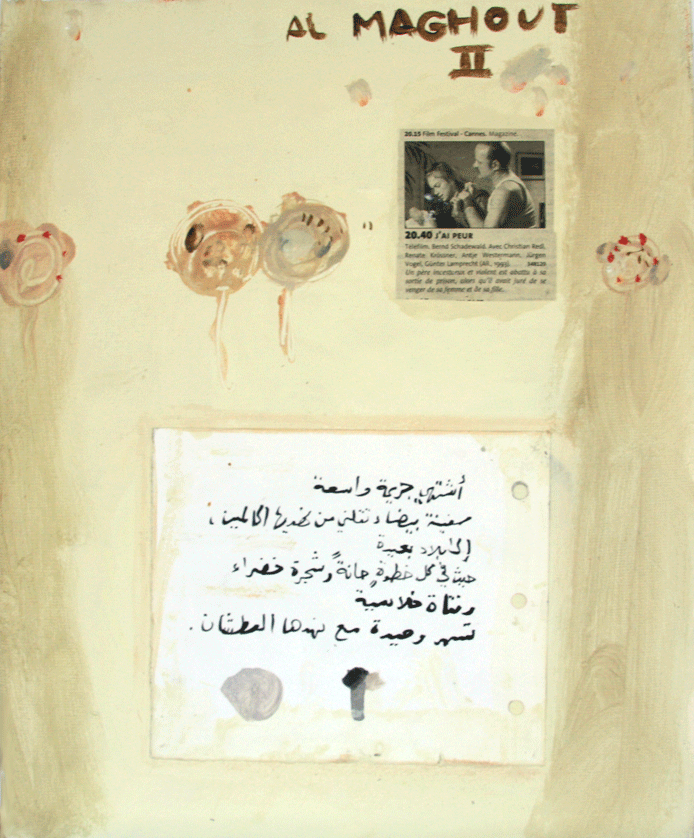 AL MAGHOUT
II
20.15 Film Festival - Cannes. Magazine.
20.40 J'AI PEUR
Téléfilm. Bernd Schadewald. Avec Christian Redl,
Renate Krössner, Antje Westermann, Jürgen
Vogel, Günter Lamprecht (All., 1993).
Un père incestueux et violent est abattu à sa
sortie de prison, alors qu'il avait juré de se
venger de sa femme et de sa fille...
أشتهي جريمة واسعة
سفينة بيضاء تقلني من نهديها المالحين ،
إلى بلاد بعيدة
حيث في كل خطوةٍ حانةٌ وشجرة خضراء
وفتاة خلاسية
تسهر وحيدة مع نهدها العطشان .